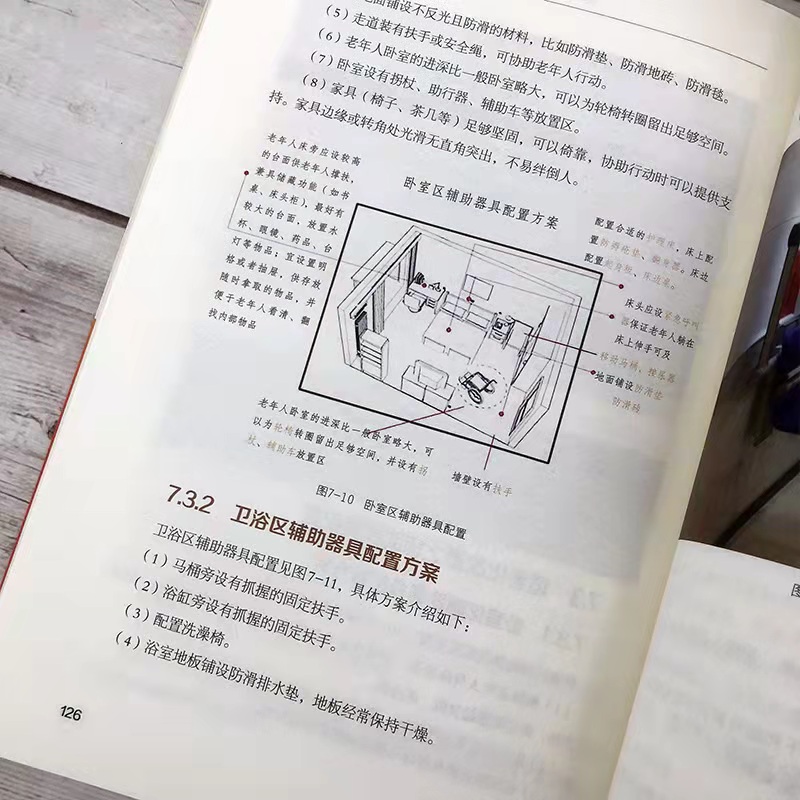 地面铺设不反光且防滑的材料，比如防滑垫、防滑地砖、防滑毯。
（5）走道装有扶手或安全绳，可协助老年人行动。
（6）老年人卧室的进深比一般卧室略大，可以为轮椅转圈留出足够空间。
（7）卧室设有拐杖、助行器、辅助车等放置区。
（8）家具（椅子、茶几等）足够坚固，可以倚靠，协助行动时可以提供支
持。家具边缘或转角处光滑无直角突出，不易绊倒人。
卧室区辅助器具配置方案
老年人床旁应设较高
的台面供老年人撑扶，
兼具储藏功能（如书
桌、床头柜），最好有
较大的台面，放置水
杯、眼镜、药品、台
灯等物品；宜设置明
格或者抽屉，供存放
随时拿取的物品，并
便于老年人看清、翻
找内部物品
配置合适的护理床，床上配
置防褥疮垫、翻身器。床边
配置起身拉、床边桌。
床头应设紧急呼叫
器保证老年人躺在
床上伸手可及
移动马桶，接尿器
地面铺设防滑垫
防滑砖
老年人卧室的进深比一般卧室略大，可
以为轮椅转圈留出足够空间，并设有拐
杖、辅助车放置区
墙壁设有扶手
图7-10 卧室区辅助器具配置
7.3.2 卫浴区辅助器具配置方案
卫浴区辅助器具配置见图7-11，具体方案介绍如下：
（1）马桶旁设有抓握的固定扶手。
（2）浴缸旁设有抓握的固定扶手。
（3）配置洗澡椅。
（4）浴室地板铺设防滑排水垫，地板经常保持干燥。
126
图